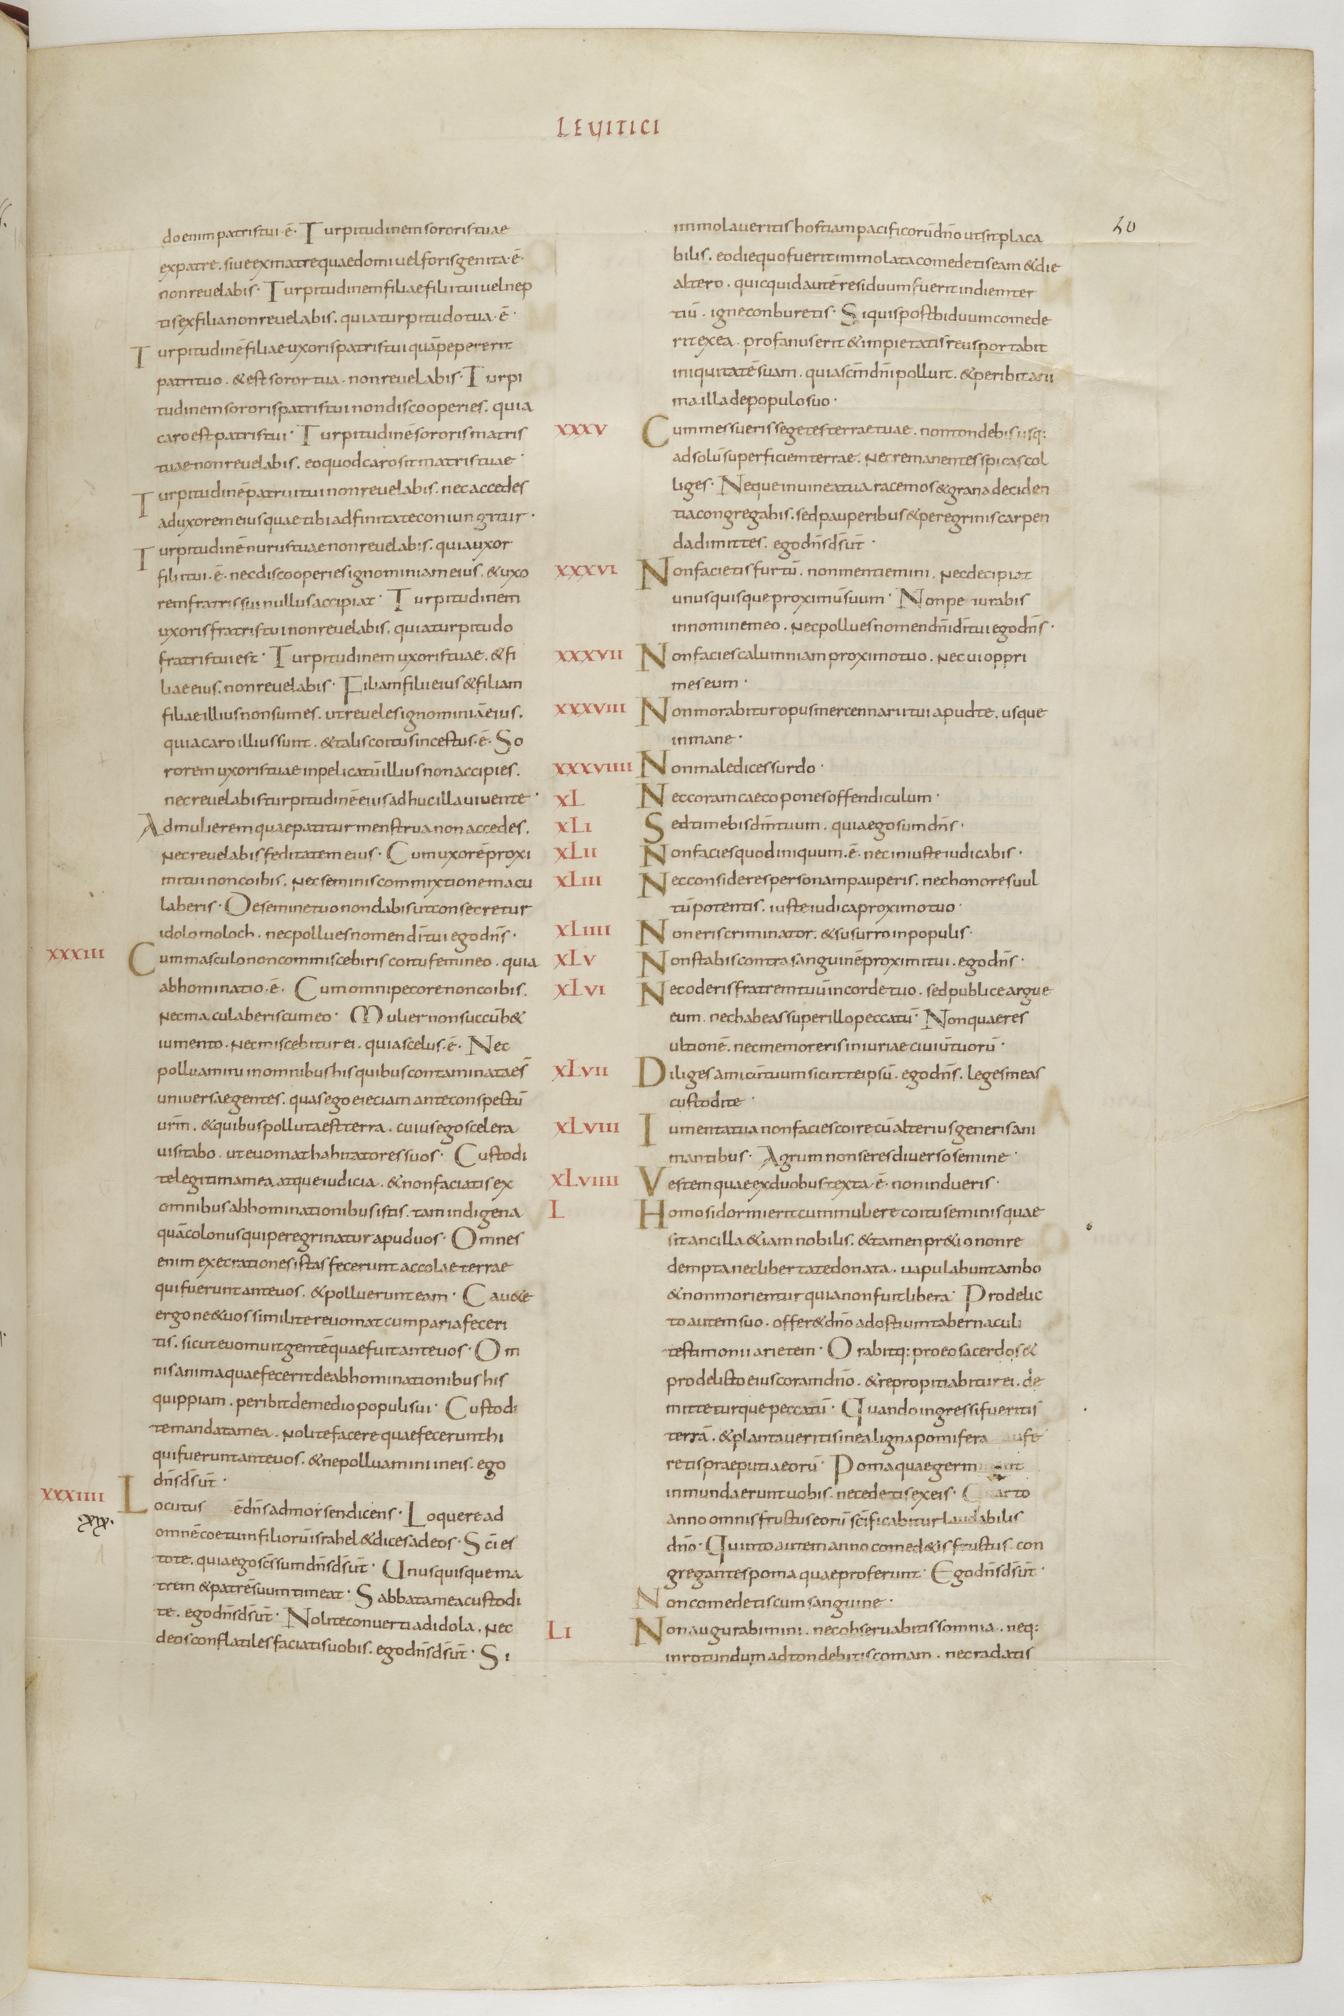 LEVITICI
40
do enim patris tui ·ē· Turpitudinem sororis tuae
ex patre . sive ex matre quae domi vel foris genita ·ē·
non revelabis · Turpitudinem filiae filii tui vel nep
tis ex filia non revelabis . quia turpitudo tua ·ē·
Turpitudinē filiae uxoris patris tui quā pepererit
patri tuo . & est soror tua . non revelabis · Turpi
tudinem sororis patris tui non discooperies . quia
caro est patris tui · Turpitudinē sororis matris
tuae non revelabis . eo quod caro sit matris tuae ·
Turpitudinē patrui tui non revelabis . nec accedes
ad uxorem eius quae tibi adfinitate coniungitur ·
Turpitudinē nurus tuae non revelabis . quia uxor
filii tui ·ē· nec discooperies ignominiam eius . & uxo
rem fratris sui nullus accipiat · Turpitudinem
uxoris fratris tui non revelabis . quia turpitudo
fratris tui est · Turpitudinem uxoris tuae . & fi
liae eius . non revelabis · Filiam filii eius & filiam
filiae illius non sumes . ut reveles ignominiā eius .
quia caro illius sunt . & talis coitus incestus ·ē· So
rorem uxoris tuae in pelicatū illius non accipies .
nec revelabis turpitudinē eius adhuc illa vivente ·
Ad mulierem quae patitur menstrua non accedes .
Nec revelabis feditatem eius · Cum uxorē proxi
mi tui non coibis . Nec seminis commixtione macu
laberis · De semine tuo non dabis ut consecretur
idolo moloch . nec pollues nomen dī tui ego dn̄s ·
XXXIII Cum masculo non commiscebiris coitu femineo . quia
abhominatio ·ē· Cum omni pecore non coibis .
Nec macula beris cum eo · Mulier non succūb&
iumento . Nec miscebitur ei . quia scelus ·ē· Nec
polluamini in omnibus his quibus contaminatae s̄
universae gentes . quas ego eieciam ante conspectū
urm̄ . & quibus polluta est terra . cuius ego scelera
visitabo . ut evomat habitatores suos · Custodi
te legitima mea . atque iudicia . & non faciatis ex
omnibus abhominationibus istis . tam indigena
quā colonus qui peregrinatur apud vos · Omnes
enim execrationes istas fecerunt accolae terrae
qui fuerunt ante vos . & polluerunt eam · Cav&e
ergo ne & vos similiter evomat cum paria feceri
tis . sicut evomuit gentē quae fuit ante vos · Om
nis anima quae fecerit de abhominationibus his
quippiam . peribit de medio populi sui · Custodi
te mandata mea . Nolite facere quae fecerunt hi
qui fuerunt ante vos . & ne polluamini in eis . ego
dn̄s ds̄ ur̄ ·
XXXIIII Locutus ē dn̄s ad mosen dicens · Loquere ad
XX·
omnē coetum filiorū israhel & dices ad eos · Sci̅ es
tote . quia ego sc̄s sum dn̄s ds̄ ur̄ · Unusquisque ma
trem & patrē suum timeat · Sabbata mea custodi
te . ego dn̄s ds̄ ur̄ · Nolite converti ad idola . Nec
deos conflatiles faciatis vobis . ego dn̄s ds̄ ur̄ · Si
immolaveritis hostiam pacificorū dn̄o ut sit placa
bilis . eo die quo fuerit immolata comedetis eam & die
altero . quicquid autē residuum fuerit in diem ter
tiū . igne conburetis · Si quis post biduum comede
rit ex ea . profanus erit & impietatis reus portabit
iniquitatē suam . quia scm̄ dn̄i polluit . & peribit ani
ma illa de populo suo ·
XXXV Cum messueris segetes terrae tuae . non tondebis usq:
ad solū superficiem terrae . Nec remanentes spicas col
liges · Neque in vinea tua racemos & grana deciden
tia congregabis . sed pauperibus & peregrinis carpen
da dimittes . ego dn̄s ds̄ ur̄ ·
XXXVI Non facietis furtū . non mentiemini . Nec decipiat
unusquisque proximū suum · Non pe iurabis
in nomine meo . Nec pollues nomen dn̄i dī tui ego dn̄s ·
XXXVII Non facies calumniam proximo tuo . Nec vi oppri
mes eum ·
XXXVIII Non morabitur opus mercennarii tui apud te . usque
in mane ·
XXXVIIII Non maledices surdo ·
XL Nec coram caeco pones offendiculum ·
XLI Sed timebis dn̄m tuum . quia ego sum dn̄s ·
XLII Non facies quod iniquum ·ē· nec iniuste iudicabis ·
XLIII Nec consideres personam pauperis . nec honores vul
tū potentis . iuste iudica proximo tuo
XLIIII Non eris criminator . & susurro in populis ·
XLV Non stabis contra sanguinē proximi tui . ego dn̄s ·
XLVI Nec oderis fratrem tuū in corde tuo . sed publice argue
eum . nec habeas super illo peccatū · Non quaeres
ultionē . nec memor eris iniuriae civiū tuorū ·
XLVII Diliges amicū tuum sicut te ipsū . ego dn̄s . leges meas
custodite ·
XLVIII Iumenta tua non facies coire cū alterius generis ani
mantibus · Agrum non seres diverso semine ·
XLVIIII Vestem quae ex duobus texta ·ē· non indueris ·
L Homo si dormierit cum muliere coitu seminis quae
sit ancilla &iam nobilis . & tamen pr&io non re
dempta nec libertate donata . vapulabunt ambo
& non morientur quia non fuit libera · Pro delic
to autem suo . offer& dn̄o ad ostium tabernaculi
testimonii arietem · Orabitq: pro eo sacerdos &
pro delicto eius coram dn̄o . & repropitiabitur ei . de
mitteturque peccatū · Quando ingressi fueritis
terrā . & plantaveritis in ea ligna pomifera aufe
retis praeputia eorū · Poma quae germ
inmunda erunt vobis . nec edetis ex eis · Quarto
anno omnis fructus eorū sc̄ificabitur laudabilis
dn̄o · Quinto autem anno comed&is fructus . con
gregantes poma quae proferunt · Ego dn̄s ds̄ ur̄ ·
Non comedetis cum sanguine ·
LI Non auguramini . nec observabitis somnia . neq:
in rotundum adtondebitis comam . nec radatis